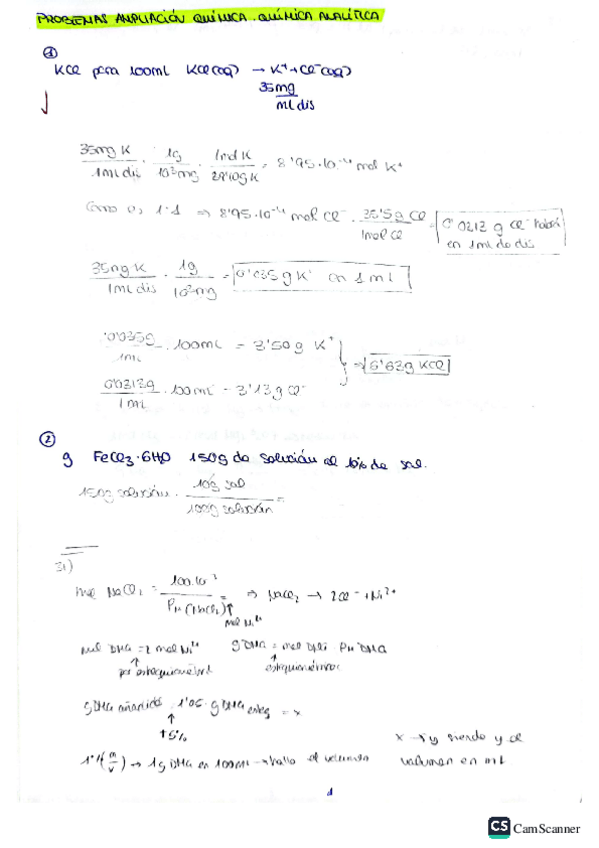 PROBLEMAS AMPLIACIÓN QUÍMICA. QUÍMICA ANALÍTICA
①
KCl para 100ml KCl(aq) → K⁺ + Cl⁻(aq)
35mg
ml dis
35mg K / 1ml dis · 1g / 10³mg · 1mol K / 39'10g K = 8'95·10⁻⁴ mol K⁺
Como es 1:1 ⇒ 8'95·10⁻⁴ mol Cl⁻ · 35'5g Cl / 1mol Cl = 0'0313 g Cl⁻ habrá
en 1ml de dis
35mg K / 1ml dis · 1g / 10³mg = 0'035g K⁺ en 1ml
0'035g / 1ml · 100ml = 3'50g K⁺
⇒ 6'63g KCl
0'0313g / 1ml · 100ml = 3'13g Cl⁻
②
g FeCl₃·6H₂O 150g de solución al 10% de sal.
150g solución · 10g sal / 100g solución =
31)
mol NiCl₂ = 100·10⁻³ / PM(NiCl₂) = ⇒ NiCl₂ → 2Cl⁻ + Ni²⁺
mol Ni²⁺
mol DMG = 2 mol Ni²⁺ g DMG = mol DMG · PM DMG
por estequiometría estequiométricos
g DMG añadidos 1'05 · g DMG esteq = x
+5%
1%(m/v) → 1g DMG en 100ml → hallo el volumen
x → y siendo y el
volumen en ml
1
CS CamScanner